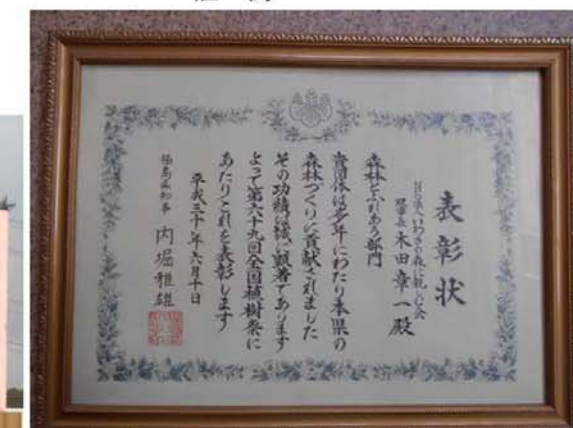 表彰状
NPO法人いわきの森に親しむ会
理事長 木田章一殿
森林とふれあう部門
貴団体は多年にわたり本県の
森林づくりに貢献されました
その功績は誠に顕著であります
よって第六十九回全国植樹祭に
あたりこれを表彰します
平成三十年六月十日
福島県知事 内堀雅雄